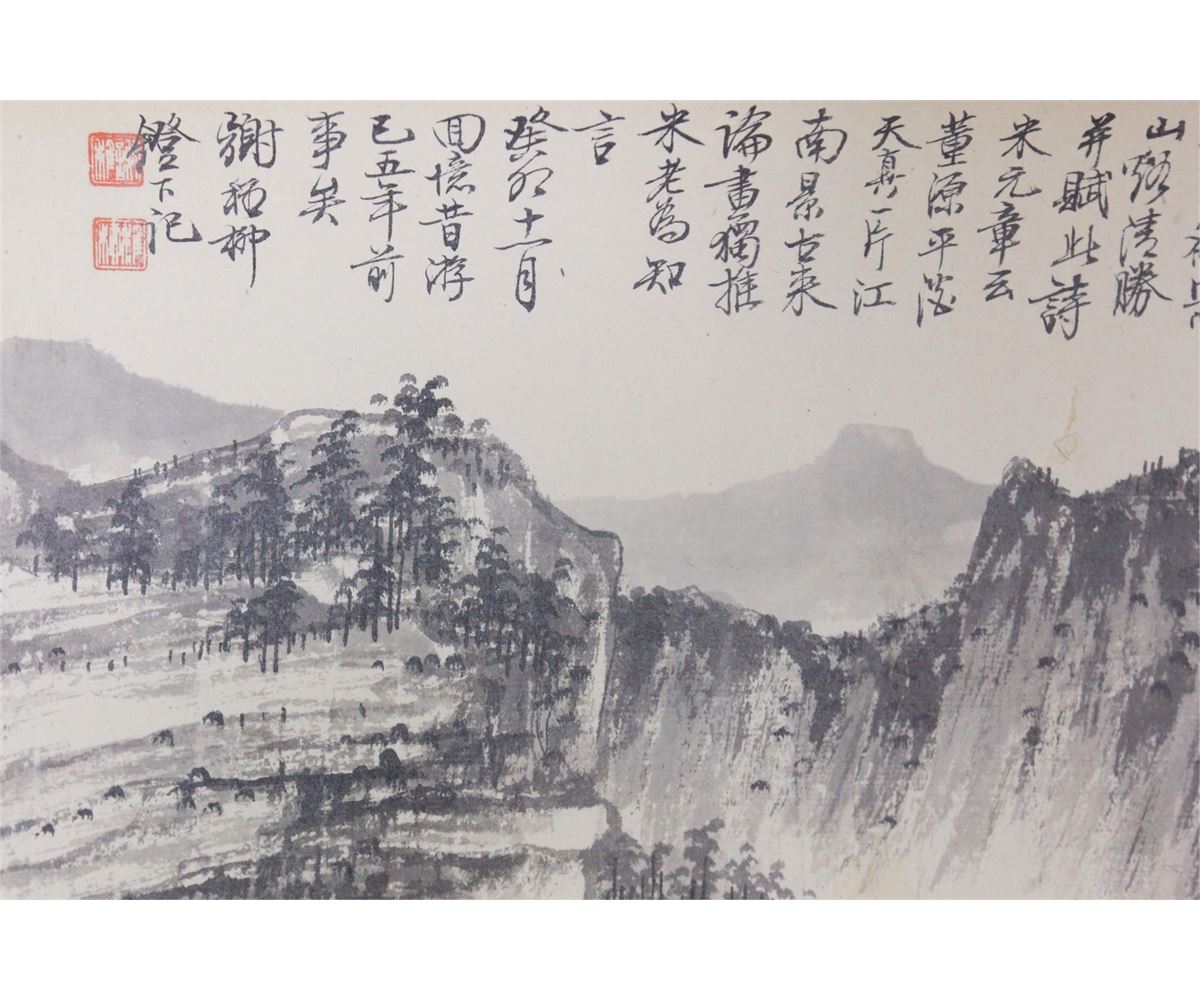 山谿清勝
并賦此詩
米元章云
董源平淡
天真一片江
南景古來
論畫獨推
米老為知
言
癸卯十一月
回憶昔游
已五年前
事矣
謝稚柳
鐙下記